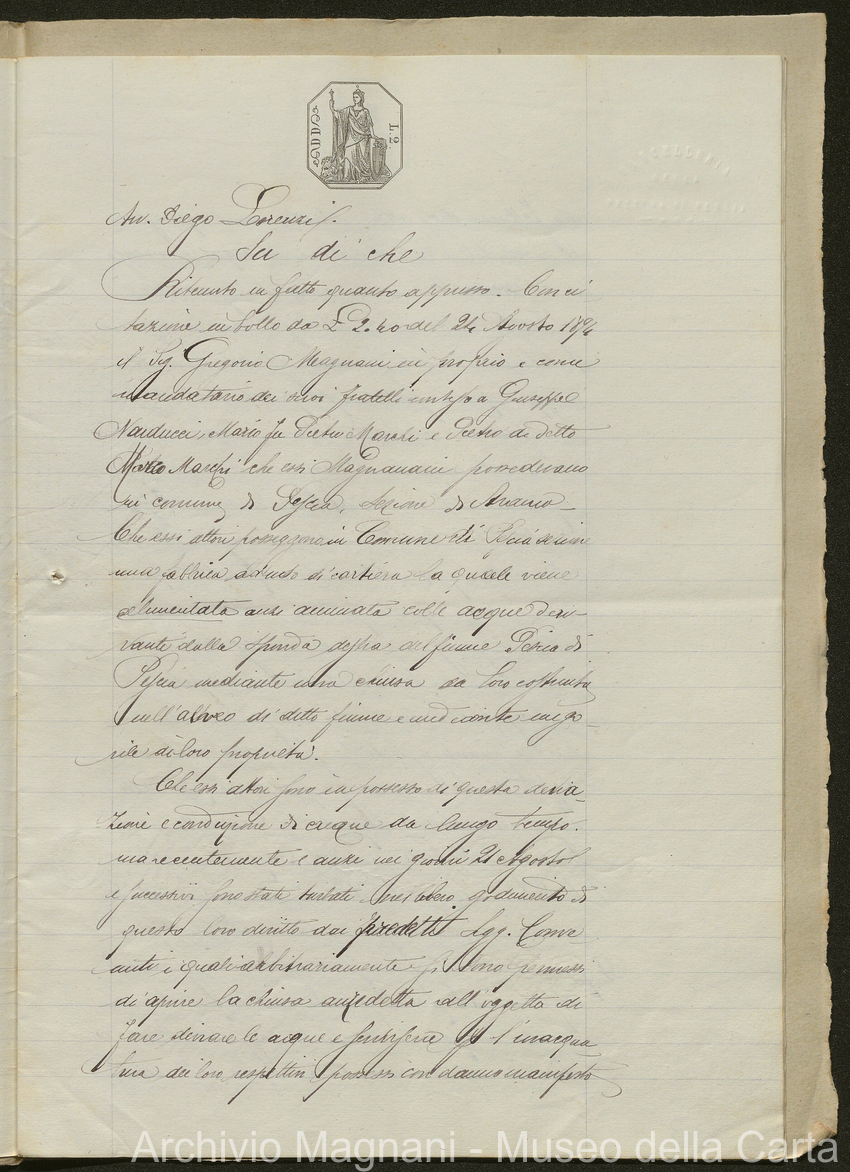 ADDS
L. 2
Avv. Diego Lorenzi.
Su di che
Ritenuto in fatto quanto appresso. Con ci
tazione in bollo da £ 2.40 del 24 Agosto 1894
il Sig. Gregorio Magnani in proprio e come
mandatario dei suoi fratelli Giuseppe
Narducci, Mario fu Pietro Marchi e Pietro di detto
Mario Marchi che essi Magnani possedevano
in comune di Pescia, sezione di
Che essi attori posseggono in Comune di Pescia
una fabbrica ad uso di cartiera la quale viene
alimentata anzi animata colle acque deri-
vanti dalla sponda destra del fiume Pescia di
Pescia mediante una chiusa da loro costruita
nell'alveo di detto fiume e mediante un go-
rile di loro proprietà.
Che essi attori sono in possesso di questa deriva-
zione e conduzione di acque da lungo tempo.
ma recentemente e anzi nei giorni 21 Agosto
e successivi sono stati turbati nel libero godimento di
questo loro diritto dai predetti Sigg. Conve
nuti i quali arbitrariamente si sono permessi
di aprire la chiusa anzidetta all'oggetto di
fare deviare le acque e servirsene per l'innacqua
tura dei loro respettivi possessi con danno manifesto
Archivio Magnani - Museo della Carta